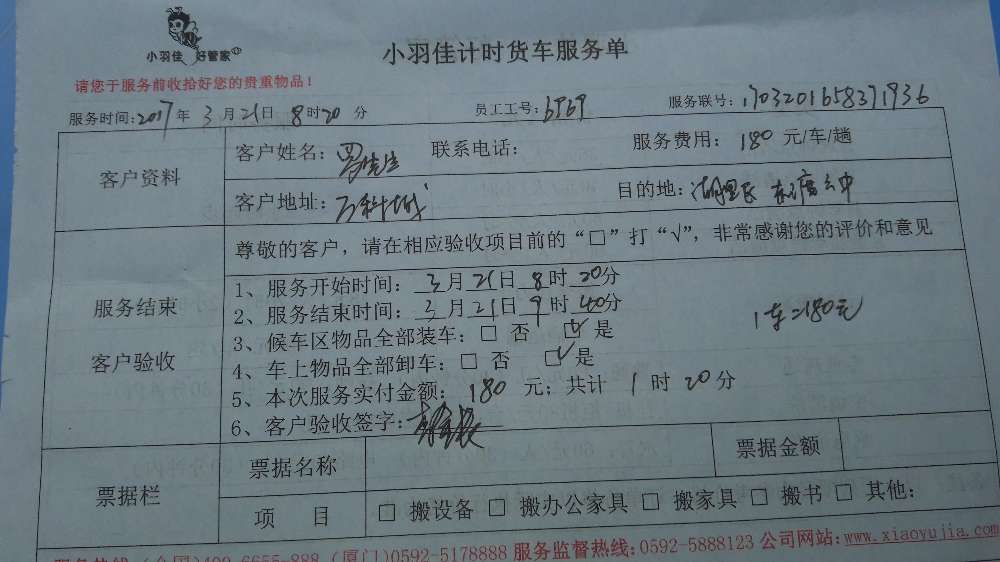 小羽佳 好管家
小羽佳计时货车服务单
请您于服务前收拾好您的贵重物品！
服务时间：2017年 3月21日 8时20分 员工工号：6769 服务联号：1703201658371936
客户资料
客户姓名：罗先生 联系电话： 服务费用：180 元/车/趟
客户地址：万科城 目的地：湖里区
尊敬的客户，请在相应验收项目前的“□”打“√”，非常感谢您的评价和意见
服务结束
客户验收
1、服务开始时间：3月21日8时20分
2、服务结束时间：3月21日9时40分
3、候车区物品全部装车：□ 否 ☑ 是
4、车上物品全部卸车：□ 否 ☑ 是
5、本次服务实付金额：180 元；共计 1 时 20 分
6、客户验收签字：
1车=180元
票据栏
票据名称 票据金额
项 目 □ 搬设备 □ 搬办公家具 □ 搬家具 □ 搬书 □ 其他：
服务热线：(全国)400-6655-888 (厦门)0592-5178888 服务监督热线：0592-5888123 公司网站：www.xiaoyujia.com